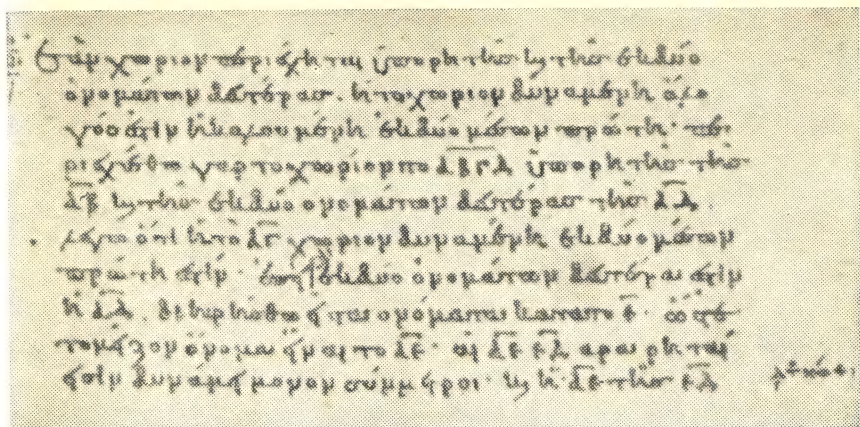 Ἐὰν χωρίον περιέχηται ὑπὸ ῥητῆς καὶ τῆς ἐκ δύο
ὀνομάτων δευτέρας, ἡ τὸ χωρίον δυναμένη ἄλο
γός ἐστιν ἡ καλουμένη ἐκ δύο μέσων πρώτη· πε
ριεχέσθω γὰρ τὸ χωρίον τὸ ΑΒΓΔ ὑπὸ ῥητῆς τῆς
ΑΒ καὶ τῆς ἐκ δύο ὀνομάτων δευτέρας τῆς ΑΔ.
λέγω ὅτι ἡ τὸ ΑΓ χωρίον δυναμένη ἐκ δύο μέσων
πρώτη ἐστίν· ἐπεὶ ἐκ δύο ὀνομάτων δευτέρα ἐστὶν
ἡ ΑΔ. διηρήσθω εἰς τὰ ὀνόματα κατὰ τὸ Ε· ὥστε
τὸ μεῖζον ὄνομα εἶναι τὸ ΑΕ· αἱ ΑΕ ΕΔ ἄρα ῥηταί
εἰσιν δυνάμει μόνον σύμμετροι· καὶ ἡ ΑΕ τῆς ΕΔ